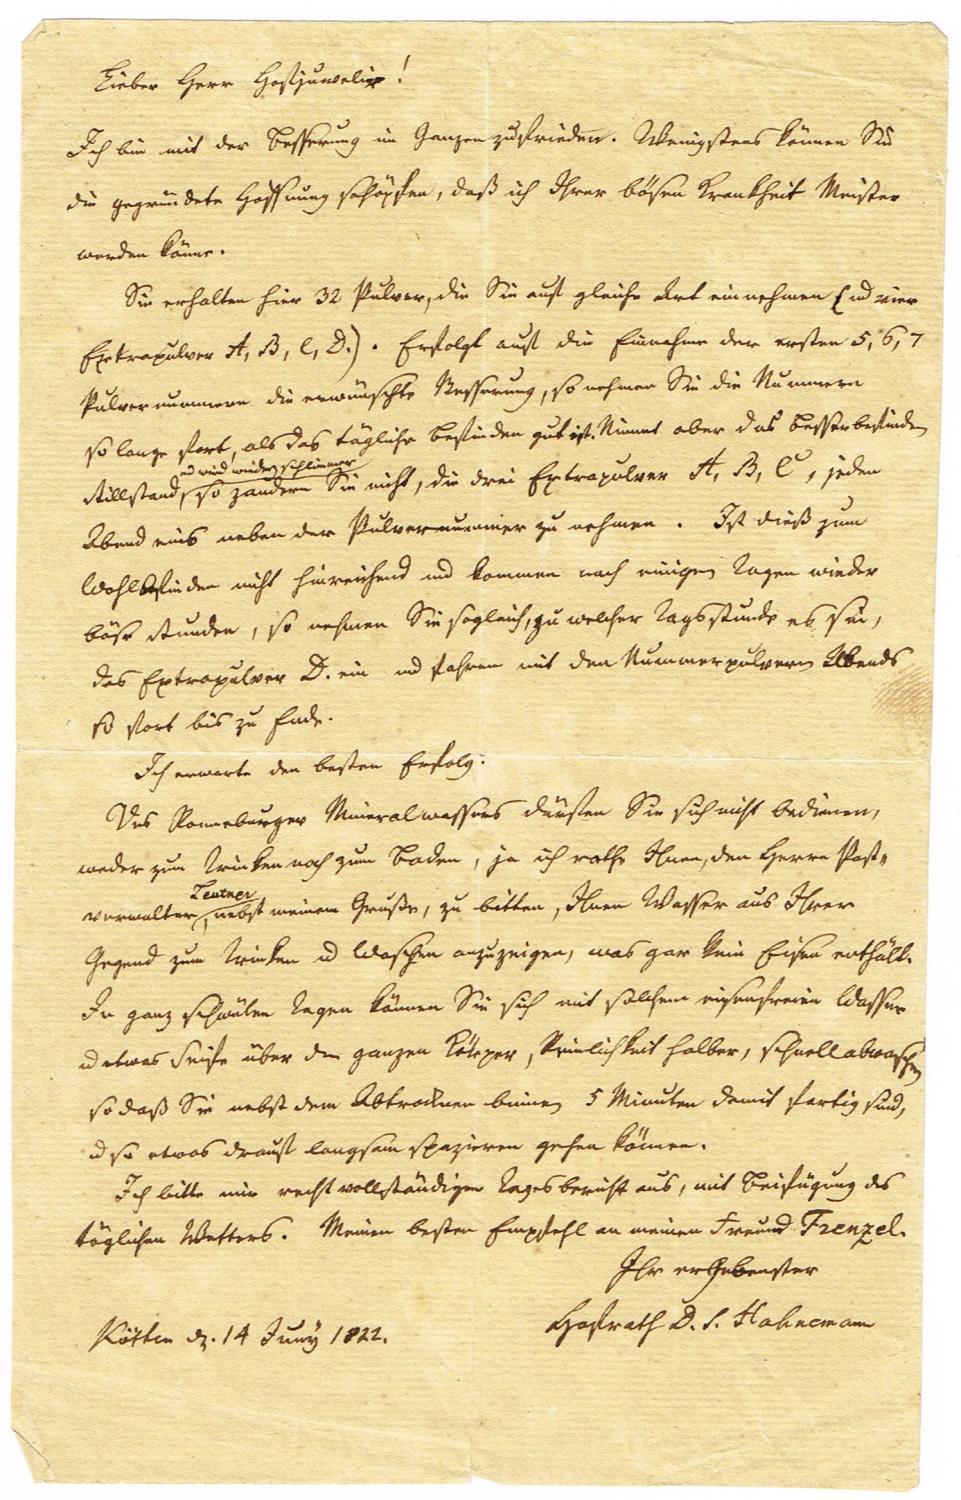 Lieber Herr Hofjuwelier!
Ich bin mit der Besserung im Ganzen zufrieden. Wenigstens können Sie
die gegründete Hoffnung schöpfen, daß ich Ihrer bösen Krankheit Meister
werden könne.
Sie erhalten hier 32 Pulver, die Sie auf gleiche Art einnehmen (und vier
Extrapulver A, B, C, D.). Erfolgt auf die Einnahme der ersten 5, 6, 7
Pulvernummern die erwünschte Besserung, so nehmen Sie die Nummern
so lange fort, als das tägliche Befinden gut ist. Nimmt aber das Besserbefinden
es wird wieder schlimmer
Stillstand, so zaudern Sie nicht, die drei Extrapulver A, B, C, jeden
Abend eins neben der Pulvernummer zu nehmen. Ist dieß zum
Wohlbefinden nicht hinreichend und kommen nach einigen Tagen wieder
böse Stunden, so nehmen Sie sogleich, zu welcher Tagsstunde es sei,
das Extrapulver D. ein und fahren mit den Nummerpulvern Abends
so fort bis zu Ende.
Ich erwarte den besten Erfolg.
Des Ronneburger Mineralwassers dürfen Sie sich nicht bedienen,
weder zum Trinken noch zum Baden, ja ich rathe Ihnen, den Herrn Post-
Leutner
verwalter, nebst meinem Gruße, zu bitten, Ihnen Wasser aus Ihrer
Gegend zum Trinken und Waschen anzuzeigen, was gar kein Eisen enthält.
In ganz schwülen Tagen können Sie sich mit solchem eisenfreien Wasser
und etwas Seife über den ganzen Körper, Reinlichkeit halber, schnell abwaschen
so daß Sie nebst dem Abtrocknen binnen 5 Minuten damit fertig sind,
und so etwas drauf langsam spazieren gehen können.
Ich bitte mir recht vollständigen Tagesbericht aus, mit Beifügung des
täglichen Wetters. Meinen besten Empfehl an meinen Freund Frenzel.
Ihr ergebenster
Hofrath D. S. Hahnemann
Köthen d. 14 Juny 1822.